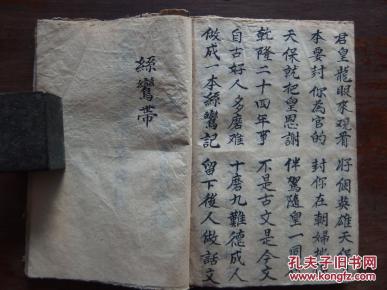 君皇龍眼來观看 好個英雄天
本要封你為官的 封你在朝婦
天保就把皇恩謝 伴駕隨皇一同
乾隆二十四年事 不是古文是今文
自古好人多磨难 十磨九難德成人
做成一本絲鸞記 留下後人做話文
絲鸞帶